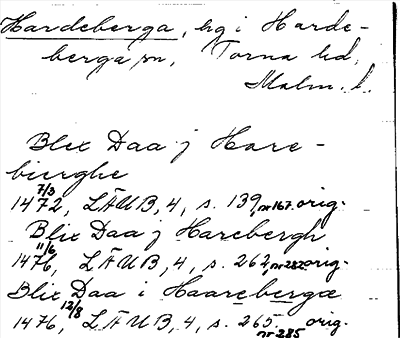 Hardeberga, hg i Harde-
berga sn, Torna hd,
Malm. l.
Blix Daa j Hare-
bierghe
7/3
1472, LÄUB, 4, s. 139, nr 167. orig.
Blix Daa j Harebergh
11/6
1476, LÄUB, 4, s. 262, nr 282. orig.
Blix Daa i Haarebergæ
12/8
1476, LÄUB, 4, s. 265. orig.
nr 285